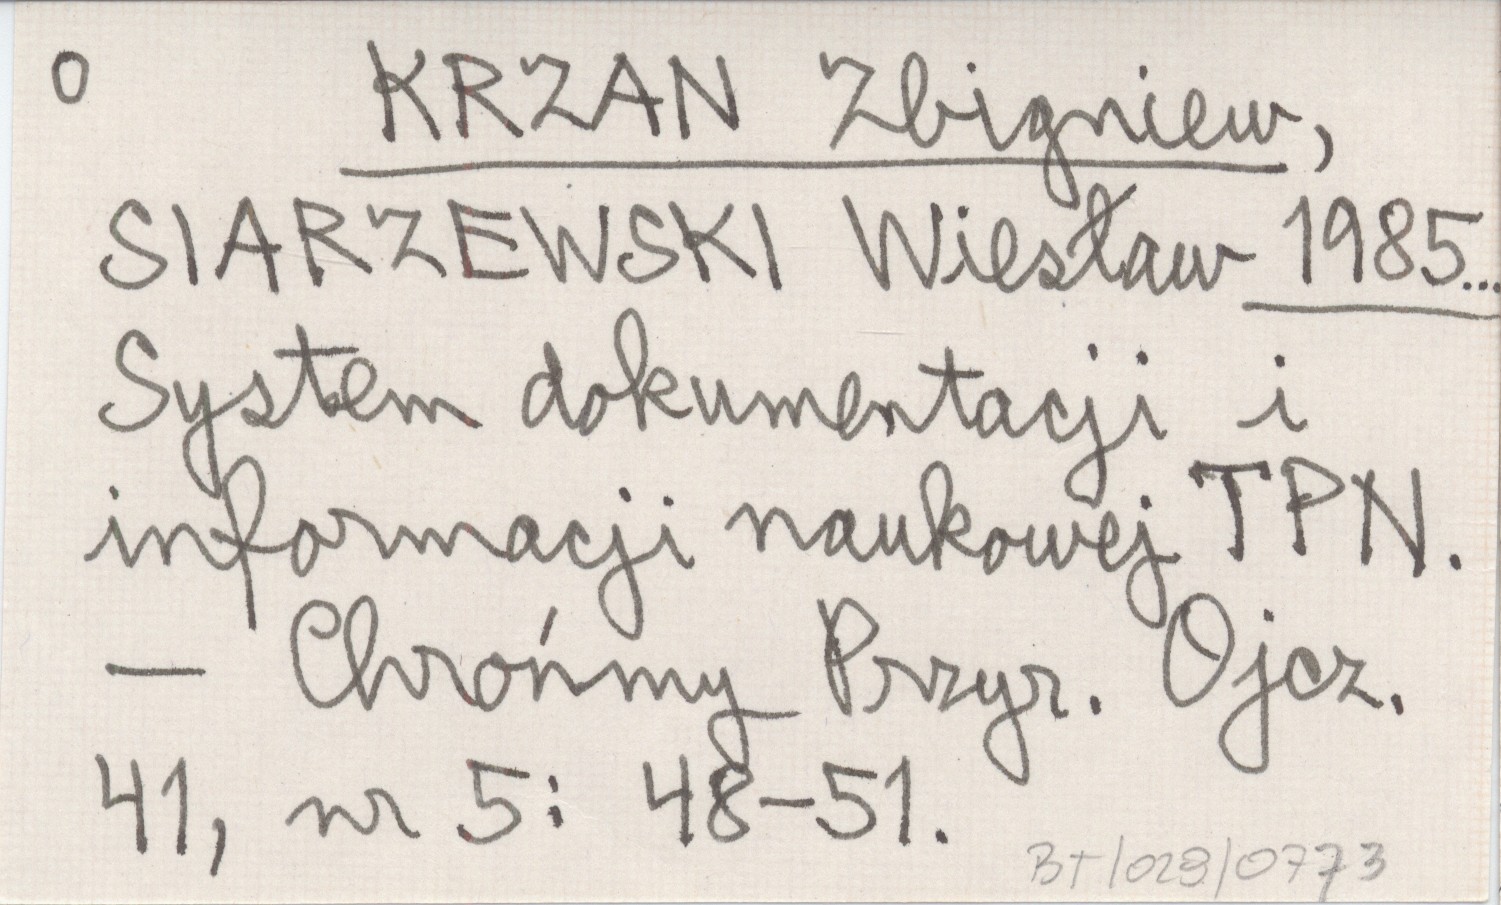 O KRZAN Zbigniew,
SIARZEWSKI Wiesław 1985...
System dokumentacji i
informacji naukowej TPN.
— Chrońmy Przyr. Ojcz.
41, nr 5: 48-51.
BT/029/0773